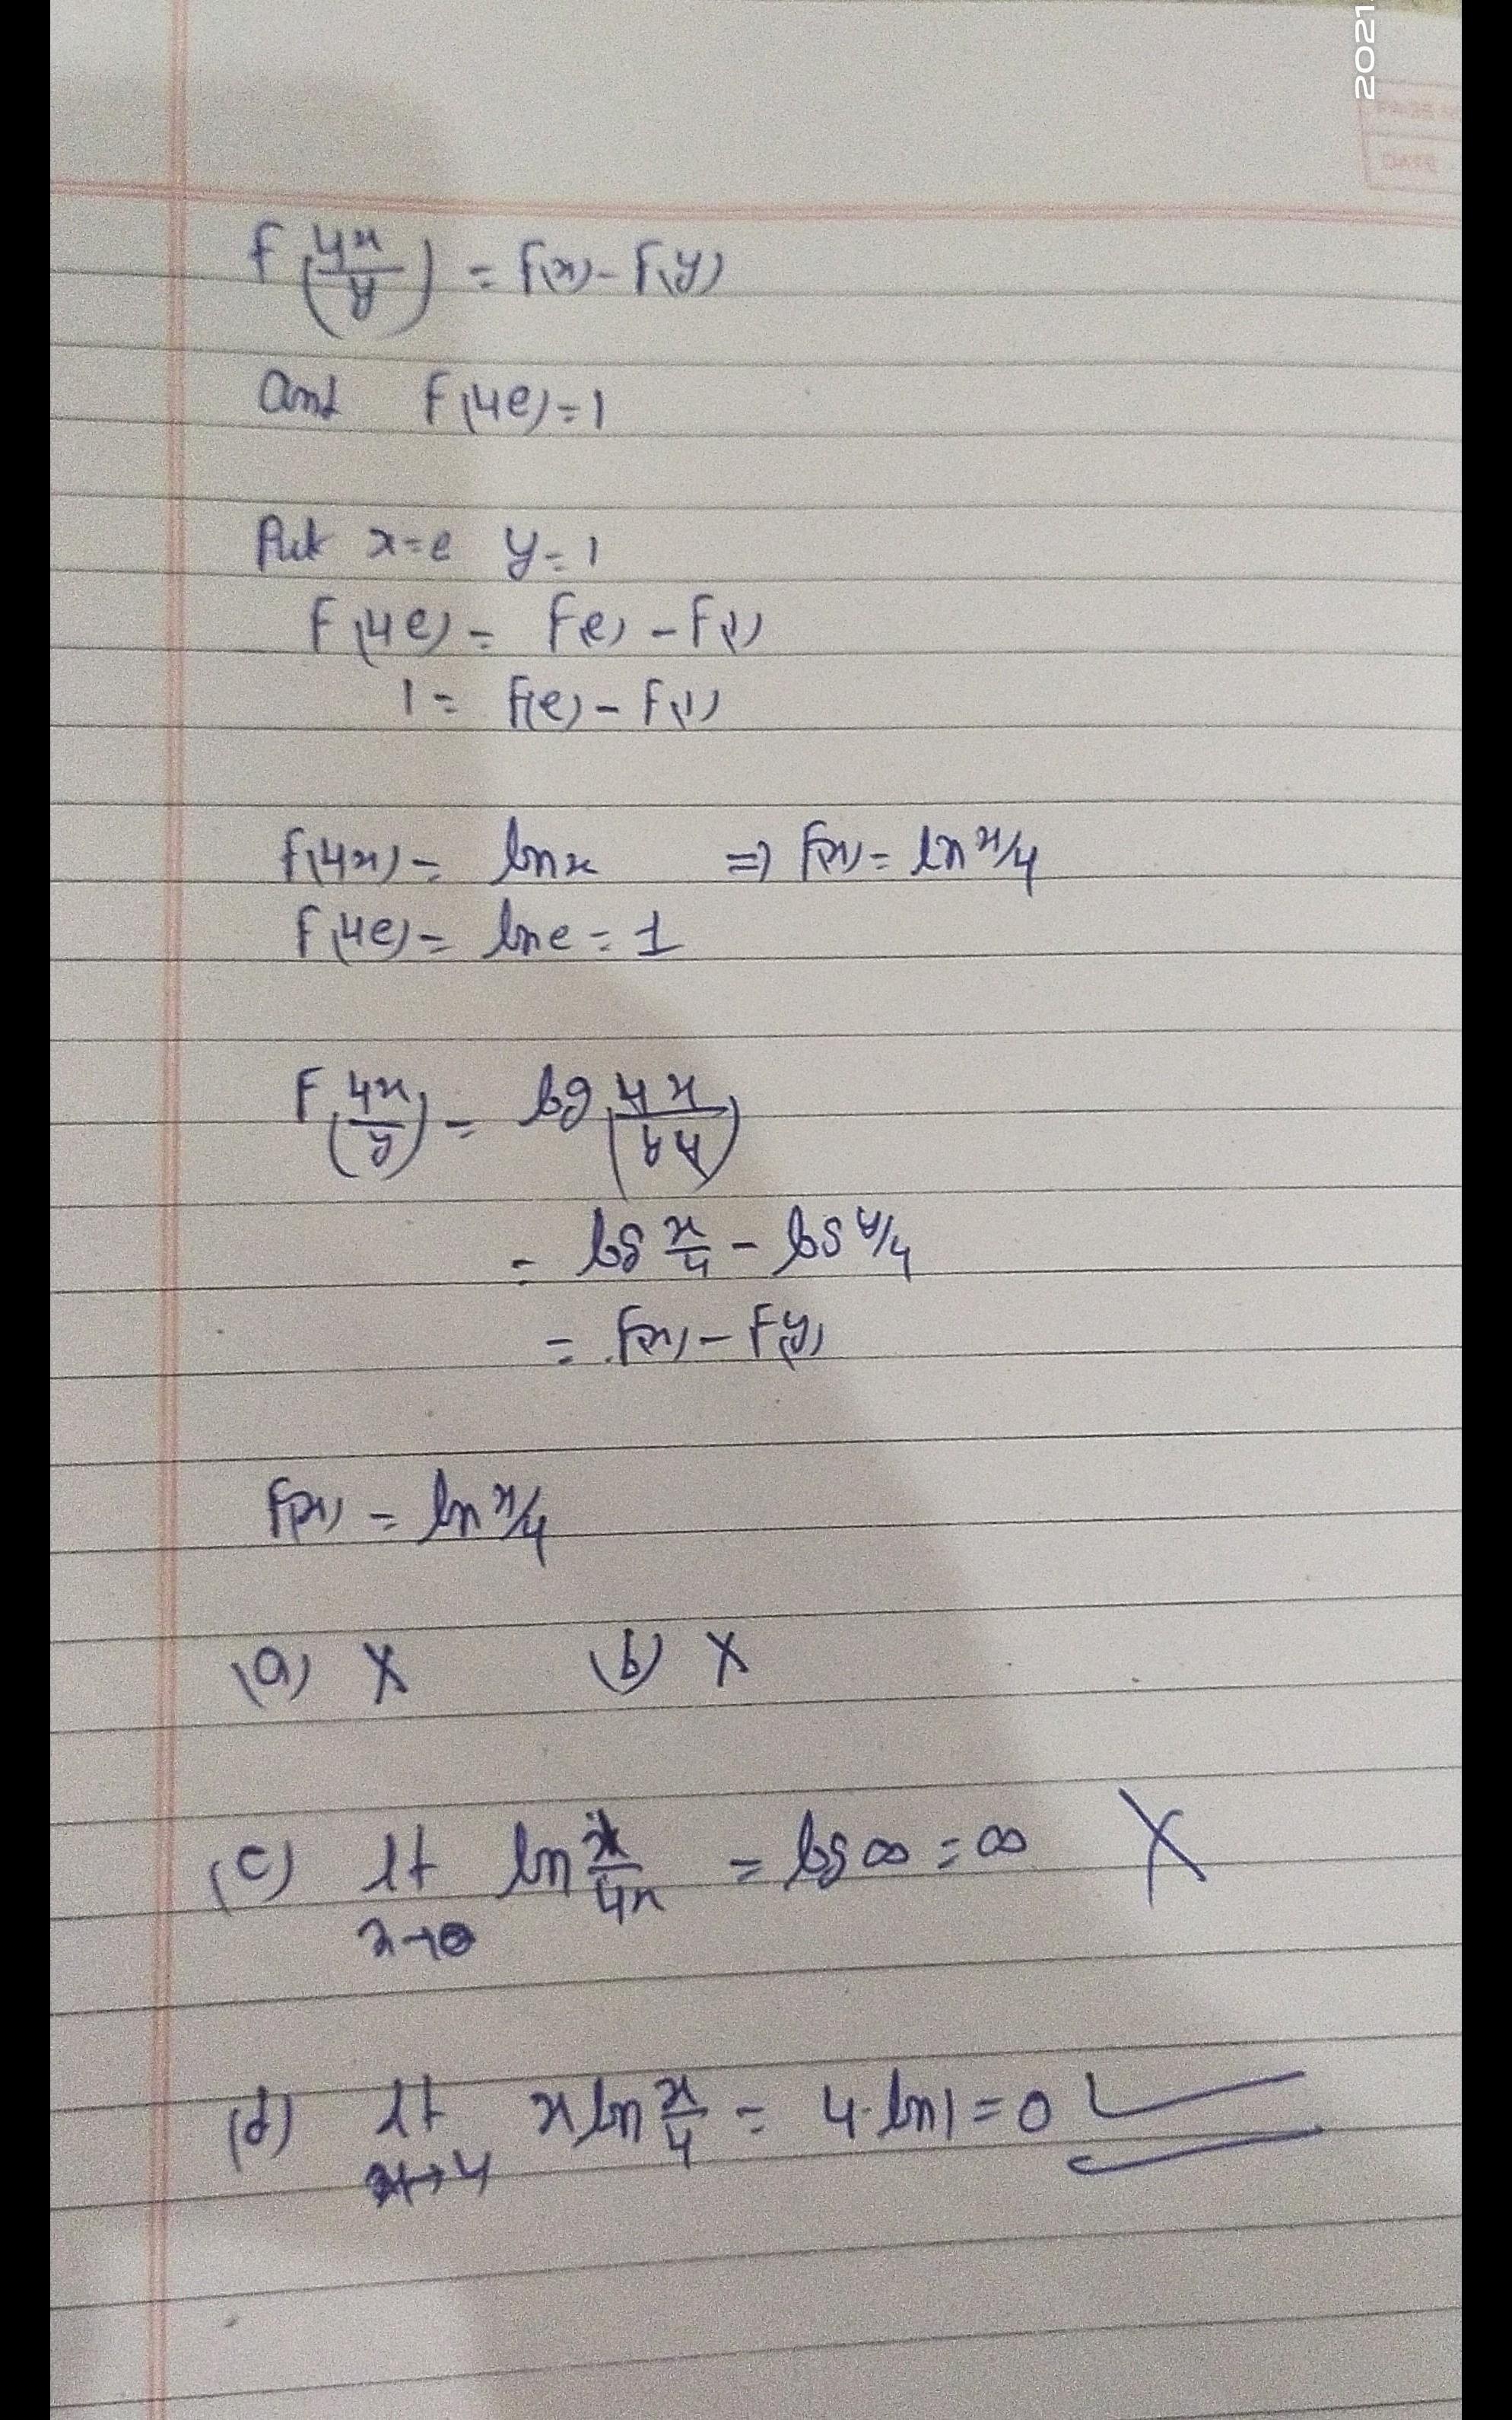 2021
F(4x/y) = F(x) - F(y)
and F(4e) = 1
Put x=e y=1
F(4e) = F(e) - F(1)
1 = F(e) - F(1)
F(4x) = ln x ⇒ F(x) = ln x/4
F(4e) = ln e = 1
F(4x/y) = log(4x/y4)
= log x/4 - log y/4
= F(x) - F(y)
F(x) = ln x/4
(a) X (b) X
(c) lt x→0 ln 1/4x = log ∞ = ∞ X
(d) lt x→4 x ln x/4 = 4·ln1 = 0 ✓